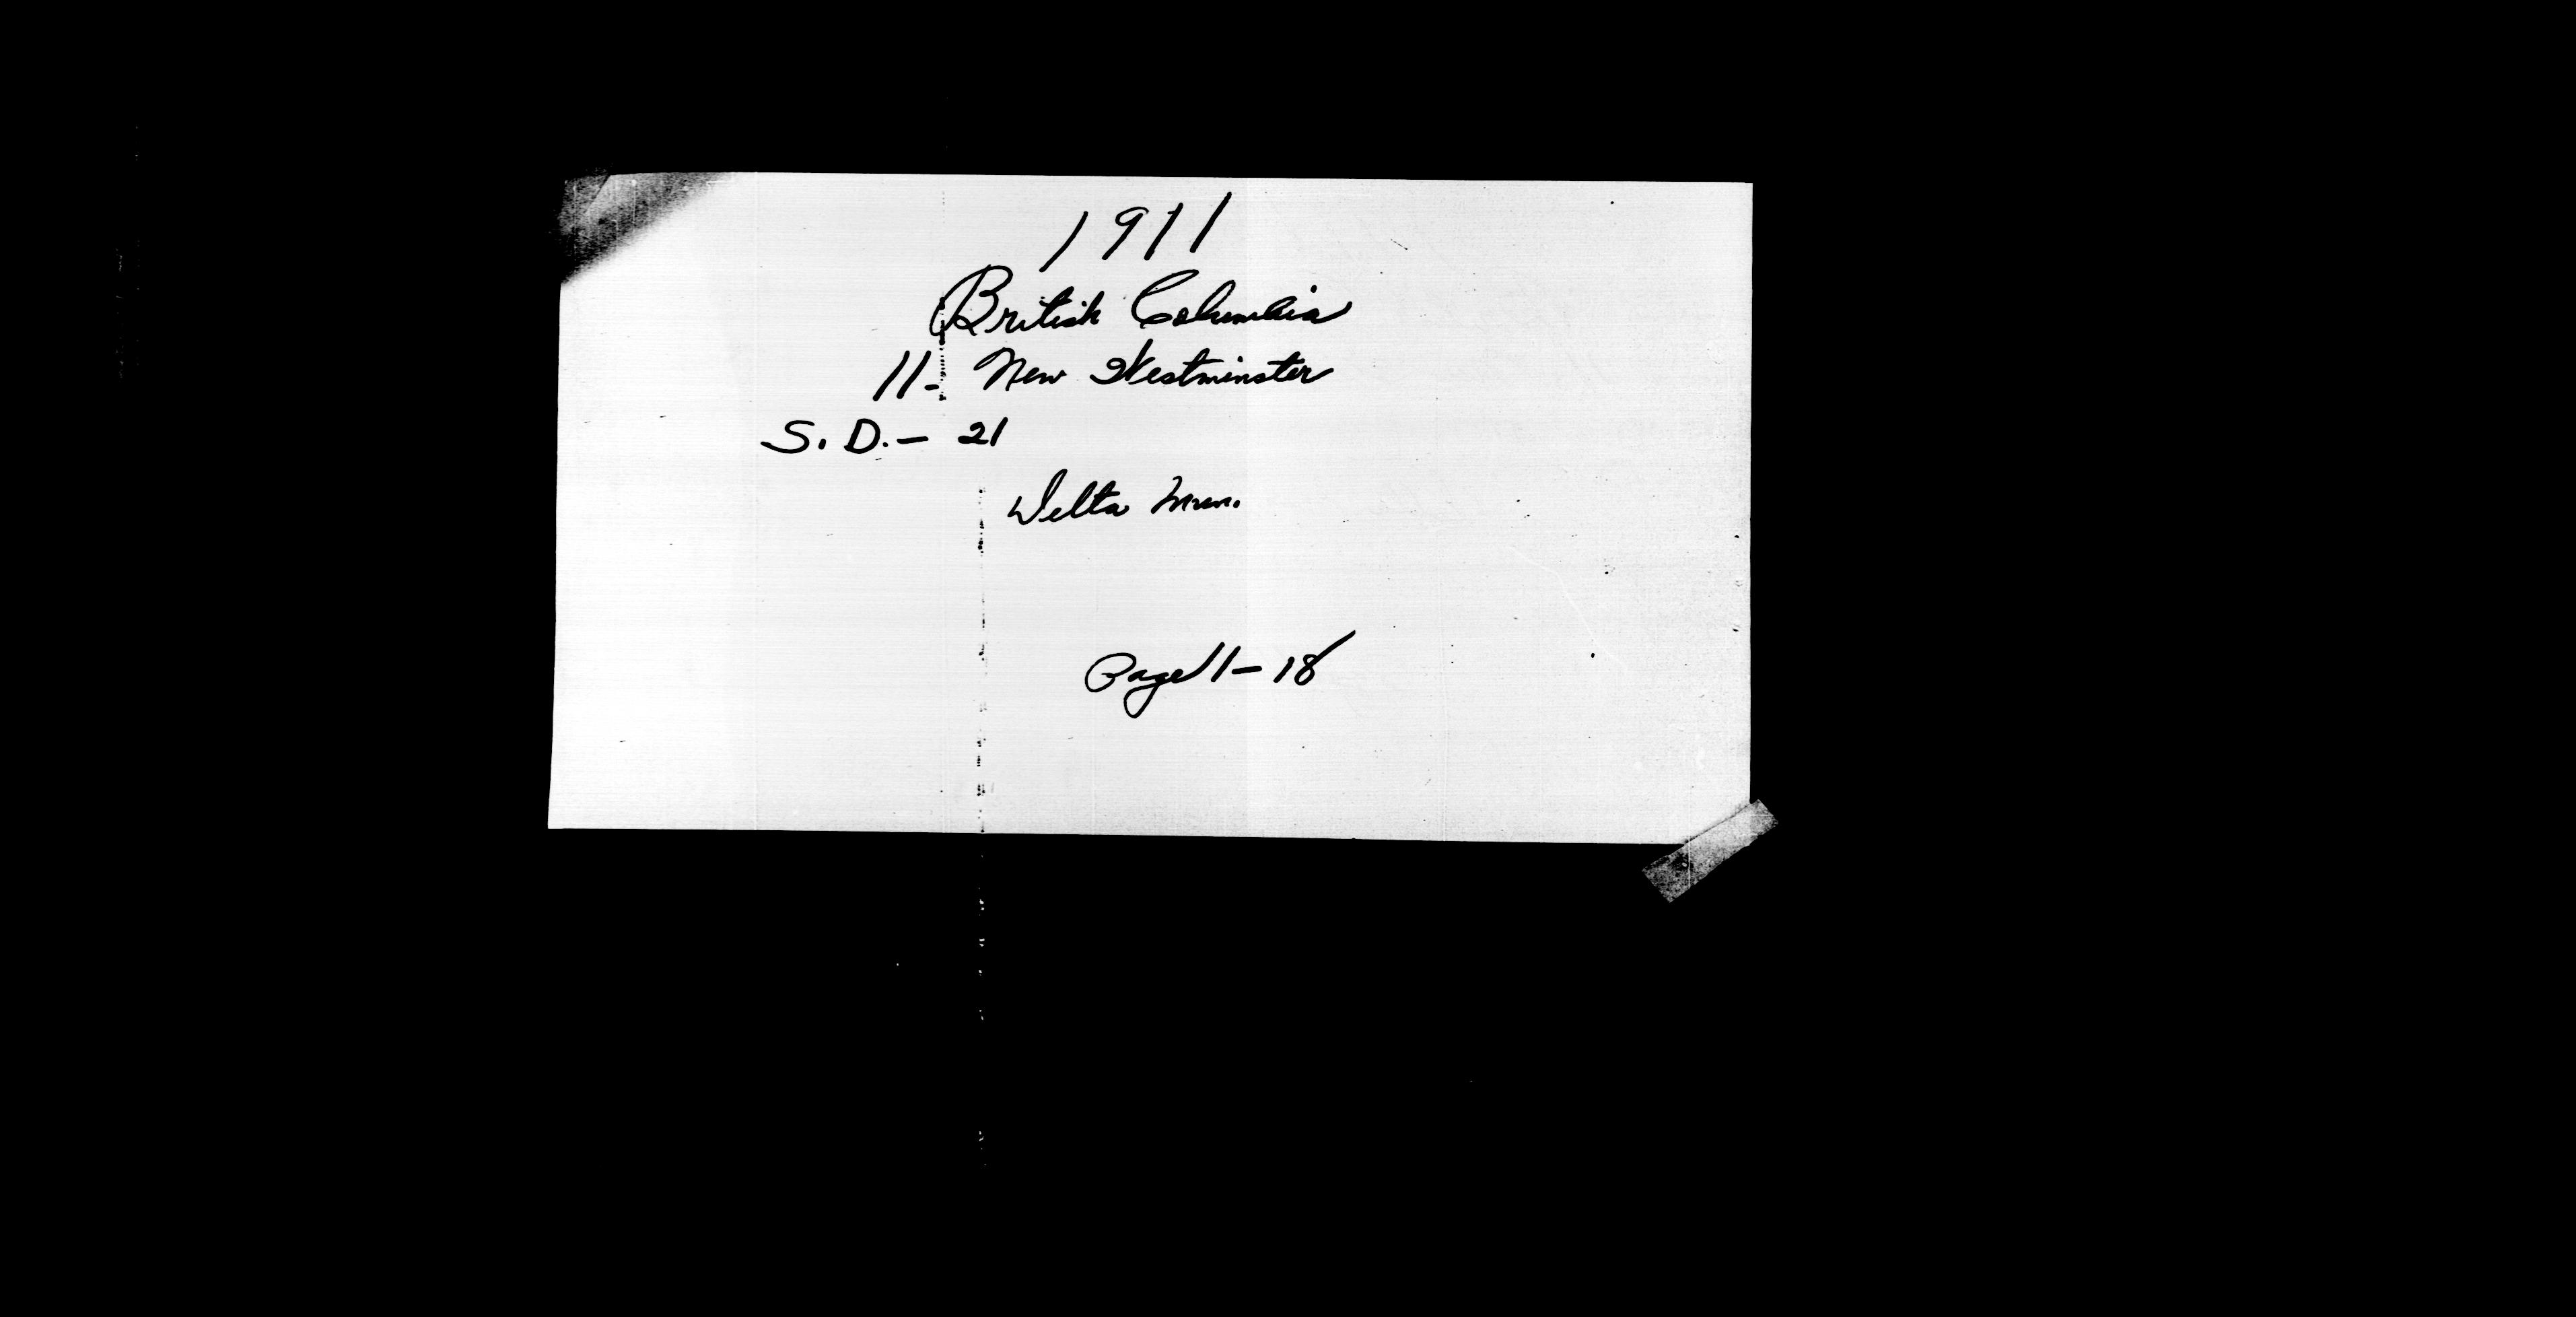 1911
British Columbia
11- New Westminster
S. D. - 21
Delta Mun.
Page 1 - 18